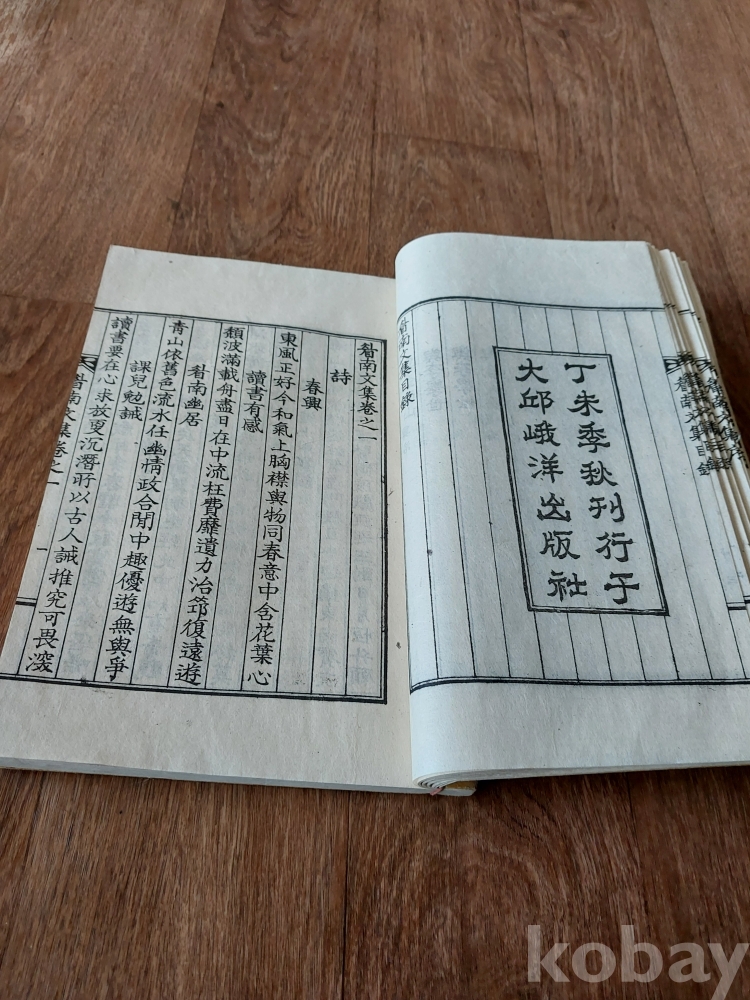 耆南文集目錄
丁未季秋刊行于
大邱峨洋出版社
耆南文集卷之一
詩
春興
東風正好今和氣上胸襟與物同春意中含花葉心
讀書有感
頹波滿載舟盡日在中流枉費靡遺力治筇復遠遊
耆南幽居
青山依舊色流水任幽情政合閒中趣優遊無與爭
課兒勉誡
讀書要在心求放更沉潛所以古人誡推究可畏深
耆南文集卷之一
一
kobay